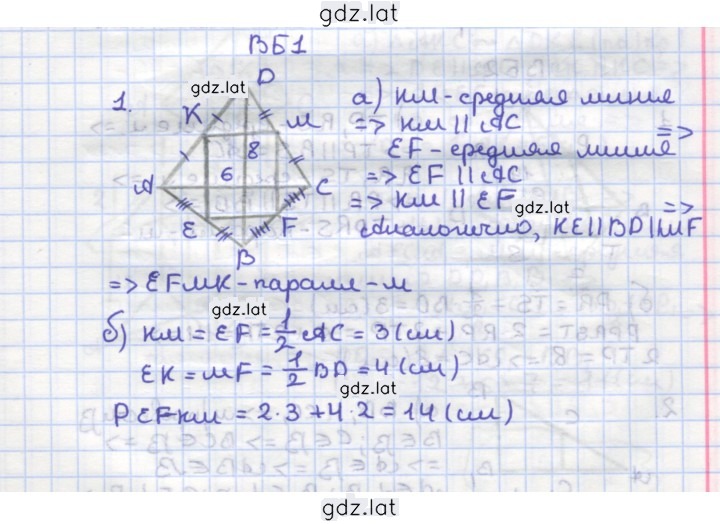 gdz.lat
ВБ1
1.
D
gdz.lat
K
M
8
6
A
C
E
F
B
а) КМ-средняя линия =>
=> КМ || АС
EF-средняя линия =>
=> EF || AC
=> КМ || EF
gdz.lat
Аналогично, KE||BD||MF =>
=> EFMK-паралл-м
gdz.lat
б) КМ = EF = 1/2 АС = 3(см)
EK = MF = 1/2 BD = 4(см)
gdz.lat
P EFKM = 2·3+4·2 = 14(см)
gdz.lat